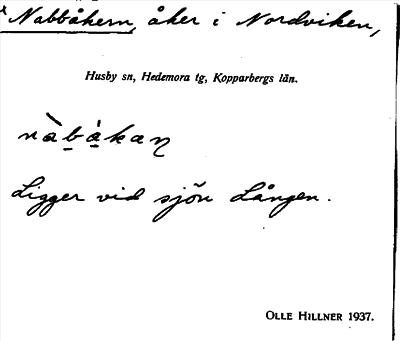 Nabbåkern, åker i Nordviken,
Husby sn, Hedemora tg, Kopparbergs län.
nàb̲å̲kaɳ
Ligger vid sjön Lången.
OLLE HILLNER 1937.